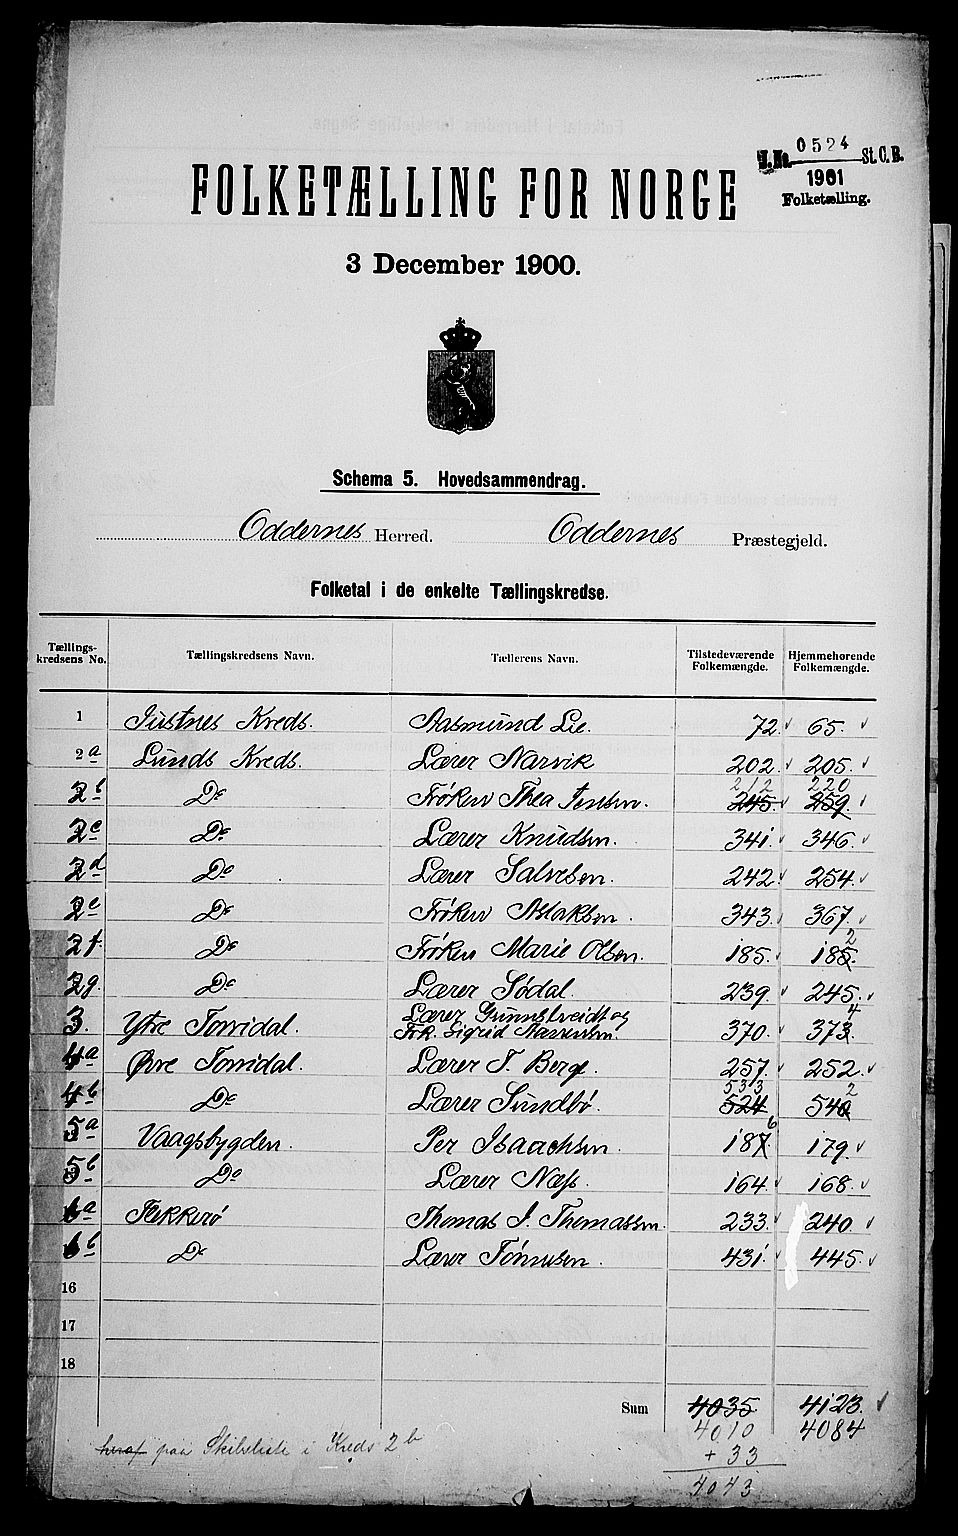 J.No. 0524 St.C.B.
1901
Folketælling.
FOLKETÆLLING FOR NORGE
3 December 1900.
Schema 5. Hovedsammendrag.
Oddernes Herred. Oddernes Præstegjeld.
Folketal i de enkelte Tællingskredse.
Tællings-kredsens No. Tællingskredsens Navn. Tællerens Navn. Tilstedeværende Folkemængde. Hjemmehørende Folkemængde.
1 Justnes Kreds. Aasmund Lie. 72. 65.
2a Lunds Kreds. Lærer Narvik 202. 205.
212 220
2b Do Frøken Thea Jensen. 245. 259.
2c Do Lærer Knudsen. 341. 346.
2d Do Lærer Salvesen. 242. 254.
2e Do Frøken Aslaksen. 343. 367.
2f. Do Frøken Marie Olsen. 185. 185. 2
2g. Do Lærer Sødal. 239. 245.
3. Ytre Torridal. Lærer Gunnstveidt og
Frk. Sigrid 370. 373. 4
4a Øvre Torridal. Lærer T. Berge. 257. 252.
533 2
4b Do Lærer Sundbø. 524 540
5a Vaagsbygden. Per Isaachsen. 187 6 179.
5b Do Lærer Næss. 164. 168.
6a Flekkerø Thomas I. Thomassen. 233. 240.
6b Do Lærer Tønnesen. 431. 445.
16
17
18
Sum 4035 4123.
4010 4084
+ 33
4043
heraf paa Skibsliste i Kreds 2b